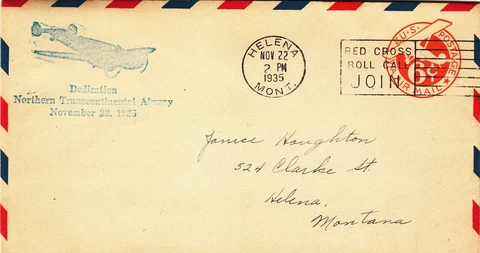 Dedication
Northern Transcontinental Airway
November 22, 1935
HELENA
NOV 22
2 PM
1935
MONT.
RED CROSS
ROLL CALL
JOIN
U.S. POSTAGE
6¢
AIR MAIL
Janice Houghton
524 Clarke St
Helena,
Montana